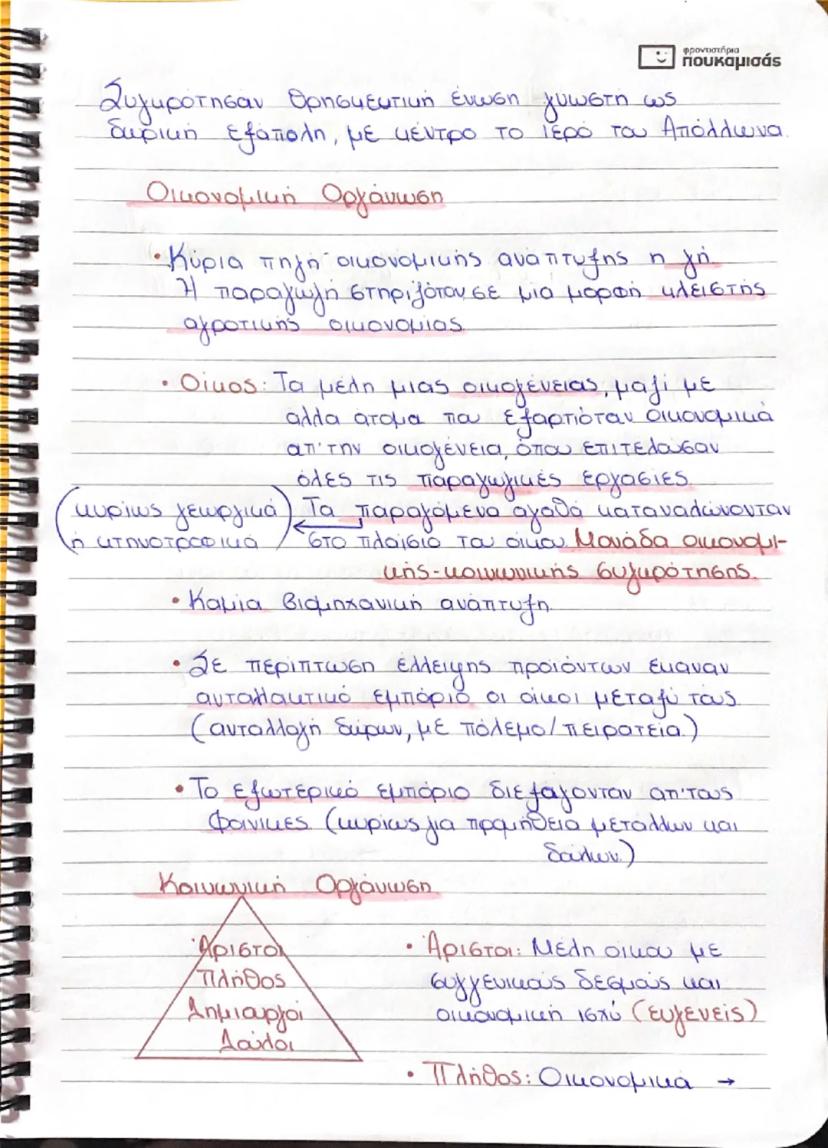 φροντιστήρια
πουκαμισάς
Συγκρότησαν θρησκευτική ένωση γνωστή ως
δωρική εξάπολη, με κέντρο το ιερό του Απόλλωνα.
Οικονομική Οργάνωση
• Κύρια πηγή οικονομικής ανάπτυξης η γή
Η παραγωγή στηριζόταν σε μια μορφή κλειστής
αγροτικής οικονομίας.
• Οίκος: Τα μέλη μιας οικογένειας, μαζί με
άλλα άτομα που εξαρτιόταν οικονομικά
απ'την οικογένεια, όπου επιτελούσαν
όλες τις παραγωγικές εργασίες.
(κυρίως γεωργικά Τα παραγόμενα αγαθά καταναλώνονταν
ή κτηνοτροφικά) ← στο πλαίσιο του οίκου. Μονάδα οικονομι-
κής-κοινωνικής συγκρότησης.
• Καμία βιομηχανική ανάπτυξη.
• Σε περίπτωση έλλειψης προιόντων έκαναν
ανταλλακτικό εμπόριο οι οίκοι μεταξύ τους.
(ανταλλαγή δώρων, με πόλεμο/πειρατεία.)
• Το εξωτερικό εμπόριο διεξάγονταν απ'τους
Φοίνικες (κυρίως για προμήθεια μετάλλων και
δούλων.)
Κοινωνική Οργάνωση
Άριστοι
Πλήθος
Δημιουργοί
Δούλοι
• Άριστοι: Μέλη οίκου με
συγγενικούς δεσμούς και
οικονομική ισχύ (ευγενείς)
• Πλήθος: Οικονομικά →